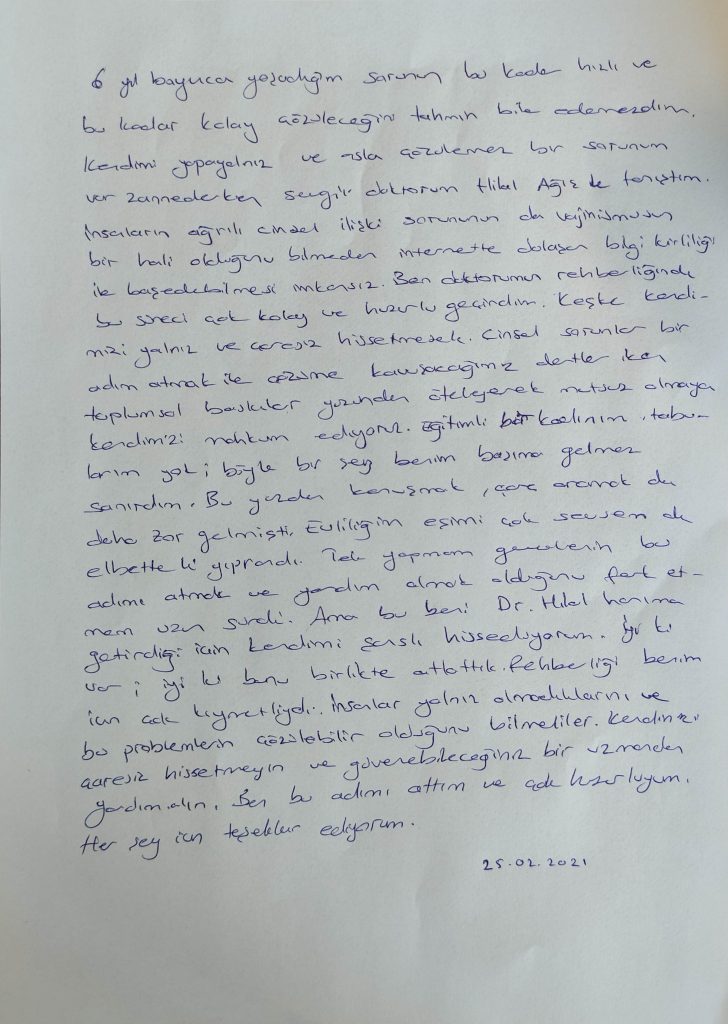 6 yıl boyunca yaşadığım sorunun bu kadar hızlı ve
bu kadar kolay çözüleceğini tahmin bile edemezdim.
Kendimi yapayalnız ve asla çözülemez bir sorunum
var zannederken sevgili doktorum Hilal Ağış ile tanıştım.
İnsanların ağrılı cinsel ilişki sorununun da vajinismusun
bir hali olduğunu bilmeden internette dolaşan bilgi kirliliği
ile başedebilmesi imkansız. Ben doktorumun rehberliğinde
bu süreci çok kolay ve huzurlu geçirdim. Keşke kendi-
mizi yalnız ve çaresiz hissetmesek. Cinsel sorunlar bir
adım atmak ile çözüme kavuşacağımız dertler iken
toplumsal baskılar yüzünden öteleyerek mutsuz olmaya
kendimizi mahkum ediyoruz. Eğitimli bir kadınım, tabu-
larım yok; böyle bir şey benim başıma gelmez
sanırdım. Bu yüzden konuşmak, çare aramak da
daha zor gelmişti. Evliliğim eşimi çok sevsem de
elbette ki yıprandı. Tek yapmam gerekenin bu
adımı atmak ve yardım almak olduğunu fark et-
mem uzun sürdü. Ama bu beni Dr. Hilal hanıma
getirdiği için kendimi şanslı hissediyorum. İyi ki
var; iyi ki bunu birlikte atlattık. Rehberliği benim
için çok kıymetliydi. İnsanlar yalnız olmadıklarını ve
bu problemlerin çözülebilir olduğunu bilmeliler. Kendinizi
çaresiz hissetmeyin ve güvenebileceğiniz bir uzmandan
yardım alın. Ben bu adımı attım ve çok huzurluyum.
Her şey için teşekkür ediyorum.
25.02.2021